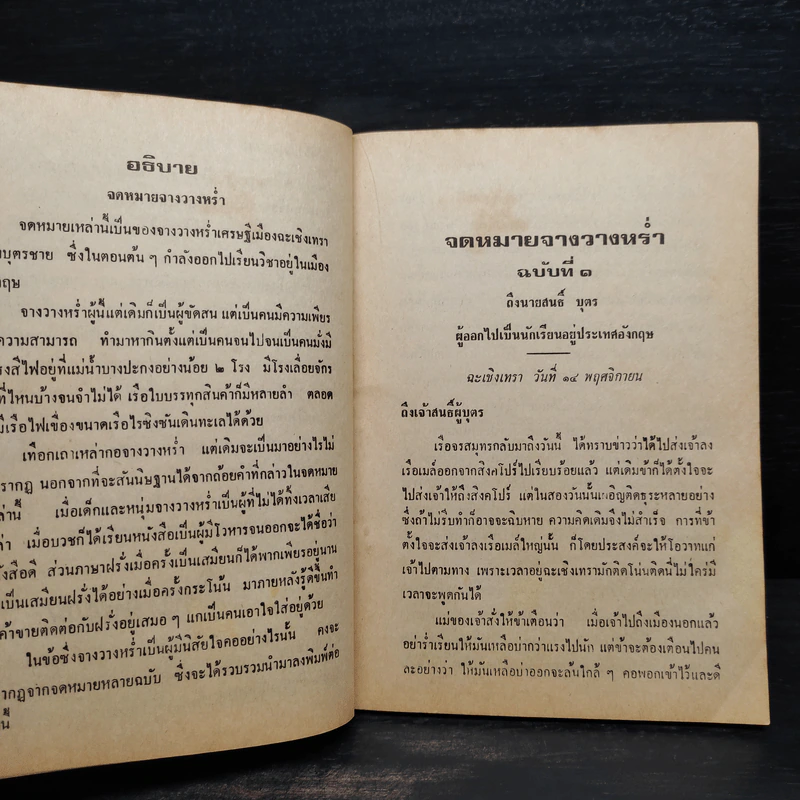 อธิบาย
จดหมายจางวางหร่ำ
จดหมายเหล่านี้เป็นของจางวางหร่ำเศรษฐีเมืองฉะเชิงเทรา
บุตรชาย ซึ่งในตอนต้น ๆ กำลังออกไปเรียนวิชาอยู่ในเมือง
กฤษ
จางวางหร่ำผู้นี้แต่เดิมก็เป็นผู้ขัดสน แต่เป็นคนมีความเพียร
ความสามารถ ทำมาหากินตั้งแต่เป็นคนจนไปจนเป็นคนมั่งมี
รงสีไฟอยู่ที่แม่น้ำบางปะกงอย่างน้อย ๒ โรง มีโรงเลื่อยจักร
ที่ไหนบ้างจนจำไม่ได้ เรือใบบรรทุกสินค้าก็มีหลายลำ ตลอด
มีเรือไฟเขื่องขนาดเรือไรซิงซันเดินทะเลได้ด้วย
เทือกเถาเหล่ากอจางวางหร่ำ แต่เดิมจะเป็นมาอย่างไรไม่
รากฏ นอกจากที่จะสันนิษฐานได้จากถ้อยคำที่กล่าวในจดหมาย
ล่านี้ เมื่อเด็กและหนุ่มจางวางหร่ำเป็นผู้ที่ไม่ได้ทิ้งเวลาเสีย
ล่า เมื่อบวชก็ได้เรียนหนังสือเป็นผู้มีโวหารจนออกจะได้ชื่อว่า
ังสือดี ส่วนภาษาฝรั่งเมื่อครั้งเป็นเสมียนก็ได้พากเพียรอยู่นาน
เป็นเสมียนฝรั่งได้อย่างเมื่อครั้งกระโน้น มาภายหลังรู้ดีขึ้นทำ
ค้าขายติดต่อกับฝรั่งอยู่เสมอ ๆ แกเป็นคนเอาใจใส่อยู่ด้วย
ในข้อซึ่งจางวางหร่ำเป็นผู้มีนิสัยใจคออย่างไรนั้น คงจะ
รากฏจากจดหมายหลายฉบับ ซึ่งจะได้รวบรวมนำมาลงพิมพ์ต่อ
นี้
จดหมายจางวางหร่ำ
ฉบับที่ ๑
ถึงนายสนธิ์ บุตร
ผู้ออกไปเป็นนักเรียนอยู่ประเทศอังกฤษ
ฉะเชิงเทรา วันที่ ๑๔ พฤศจิกายน
ถึงเจ้าสนธิ์ผู้บุตร
เรือจรสมุทรกลับมาถึงวันนี้ ได้ทราบข่าวว่าได้ไปส่งเจ้าลง
เรือเมล์ออกจากสิงคโปร์ไปเรียบร้อยแล้ว แต่เดิมข้าก็ได้ตั้งใจจะ
ไปส่งเจ้าให้ถึงสิงคโปร์ แต่ในสองวันนั้นเผอิญติดธุระหลายอย่าง
ซึ่งถ้าไม่รีบทำก็อาจจะฉิบหาย ความคิดเดิมจึงไม่สำเร็จ การที่ข้า
ตั้งใจจะส่งเจ้าลงเรือเมล์ใหญ่นั้น ก็โดยประสงค์จะให้โอวาทแก่
เจ้าไปตามทาง เพราะเวลาอยู่ฉะเชิงเทรามักติดโน่นติดนี่ไม่ใคร่มี
เวลาจะพูดกันได้
แม่ของเจ้าสั่งให้ข้าเตือนว่า เมื่อเจ้าไปถึงเมืองนอกแล้ว
อย่าร่ำเรียนให้มันเหลือบ่ากว่าแรงไปนัก แต่ข้าจะต้องเตือนไปคน
ละอย่างว่า ให้มันเหลือบ่าออกจะล้นใกล้ ๆ คอพอกเข้าไว้และดี